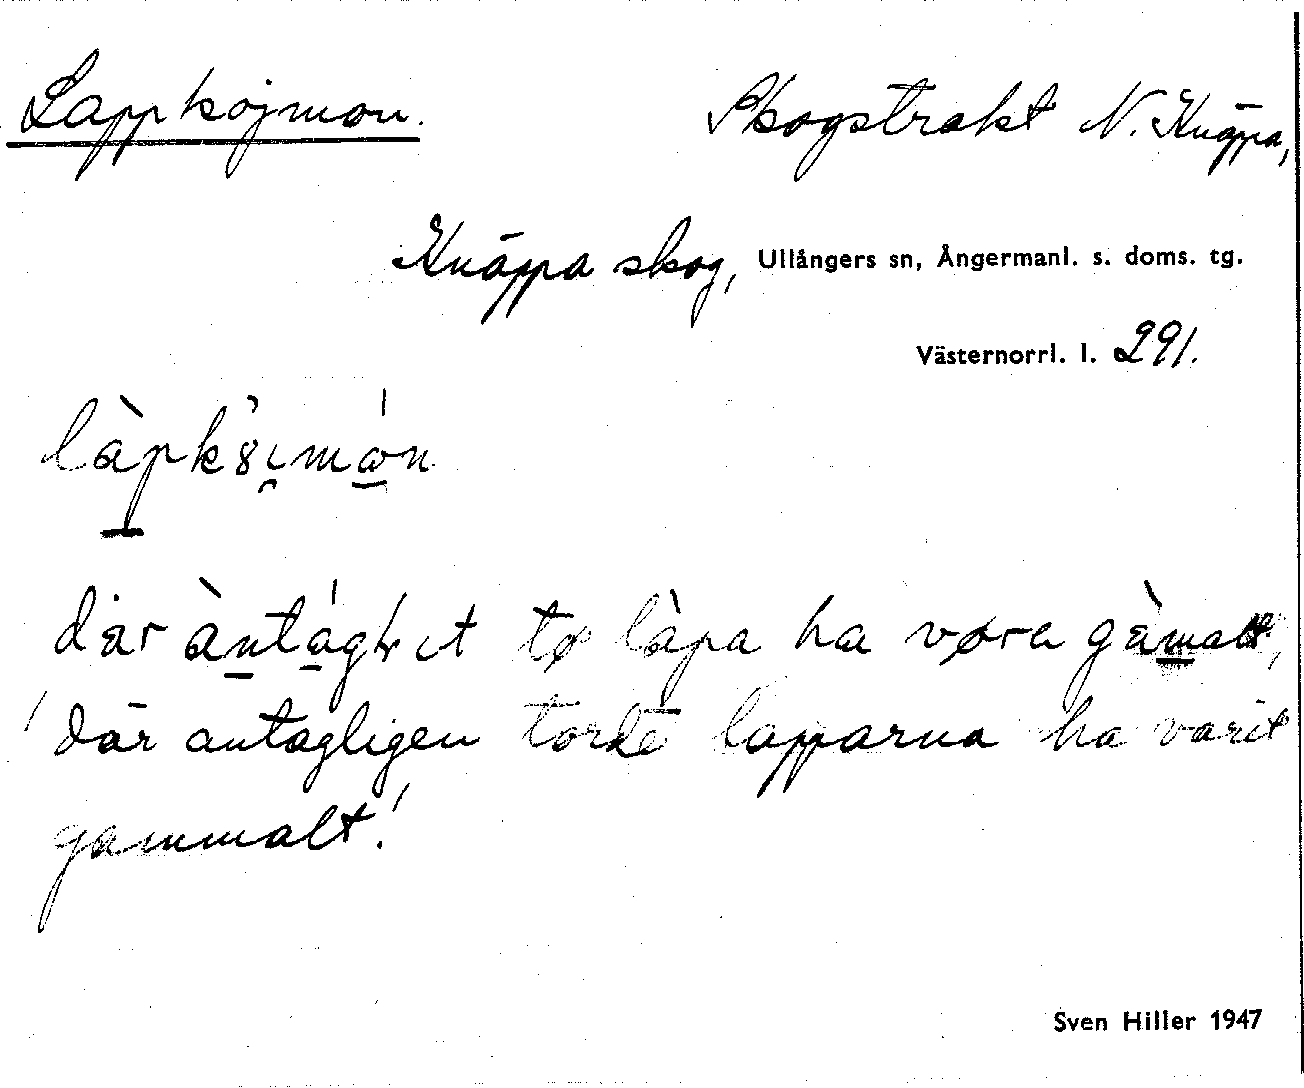 Lappkojmon. Skogstrakt N. Knäppa,
Knäppa skog, Ullångers sn, Ångermanl. s. doms. tg.
Västernorrl. l. 291.
där ha
'där antagligen torde lapparna ha varit
gammalt.'
Sven Hiller 1947